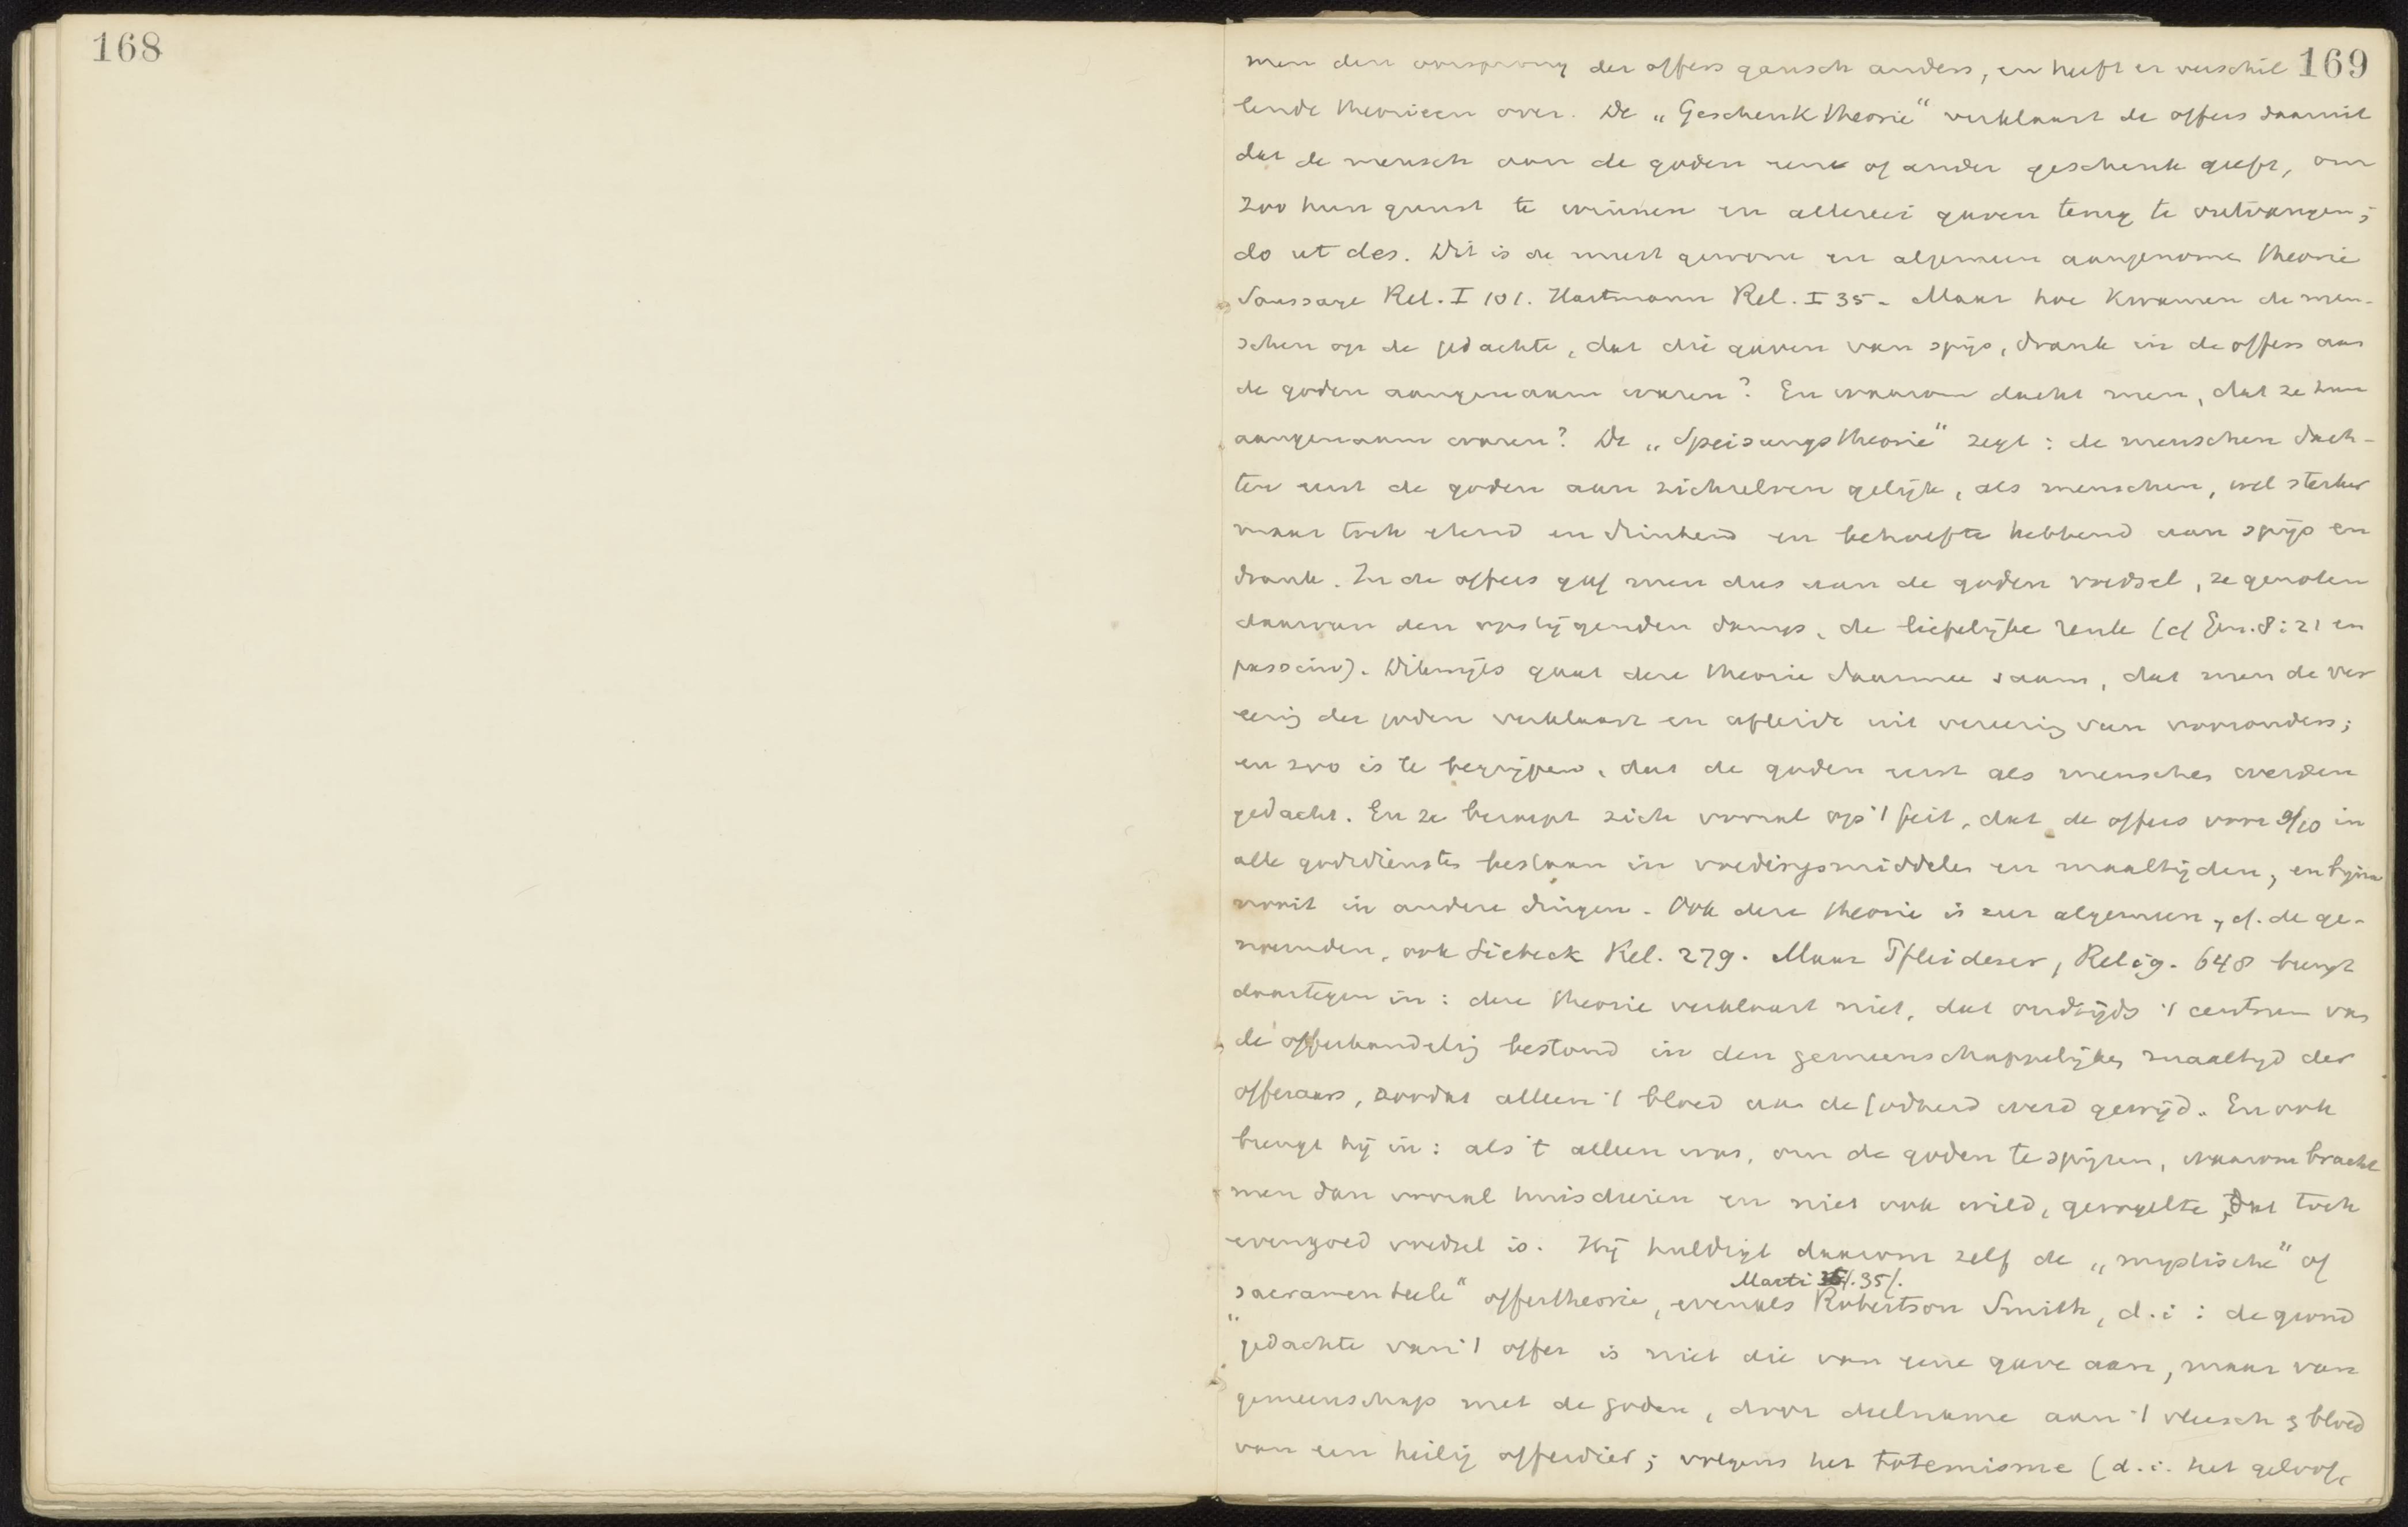 168
169
men den oorsprong der offers gansch anders, en heeft er verschil
lende theorieen over. De „Geschenktheorie" verklaart de offers daaruit
dat de mensch aan de goden eene of ander geschenk geeft, om
zoo hun gunst te winnen en allerlei gaven terug te ontvangen;
do ut des. Dit is de meest gewone en algemeen aangenomen theorie
Saussaye Rel. I 101. Hartmann Rel. I 35. Maar hoe kwamen de men-
schen op de gedachte, dat die gaven van spijs, drank in de offers aan
de goden aangenaam waren? En waarom dacht men, dat ze hun
aangenaam waren? De „Speisungstheorie" zegt: de menschen dach-
ten eerst de goden aan zichzelven gelijk, als menschen, wel sterker
maar toch etend en drinkend en behoefte hebbend aan spijs en
drank. In de offers gaf men dus aan de goden voedsel, ze genoten
daarvan den opstijgenden damp, de liefelijke reuk (cf Gen. 8:21 en
passim). Dikwijls gaat deze theorie daarmee saam, dat men de ver
eering der goden verklaart en afleidt uit vereering van voorouders;
en zoo is te begrijpen, dat de goden eerst als menschen werden
gedacht. En ze beroept zich vooral op 't feit, dat de offers voor 9/10 in
alle godsdiensten bestaan in voedingsmiddelen en maaltijden, en bijna
nooit in andere dingen. Ook deze theorie is zeer algemeen, cf. de ge-
noemden, ook Siebeck Rel. 279. Maar Pfleiderer, Relig. 648 brengt
daartegen in: deze theorie verklaart niet, dat oudtijds 't centrum van
de offerhandeling bestond in den gemeenschappelijken maaltijd der
offeraars, zoodat alleen 't bloed aan de Godheid werd gewijd. En ook
brengt hij in: als 't alleen was, om de goden te spijzen, waarom bracht
men dan vooral huisdieren en niet ook wild, gevogelte, dat toch
evengoed voedsel is. Hij huldigt daarom zelf de „mystische" of
Marti 35/.
„sacramenteele" offertheorie, evenals Robertson Smith, d.i: de grond
gedachte van 't offer is niet die van eene gave aan, maar van
gemeenschap met de goden, door deelname aan 't vleesch & bloed
van een heilig offerdier; volgens het totemisme (d.i. het geloof,